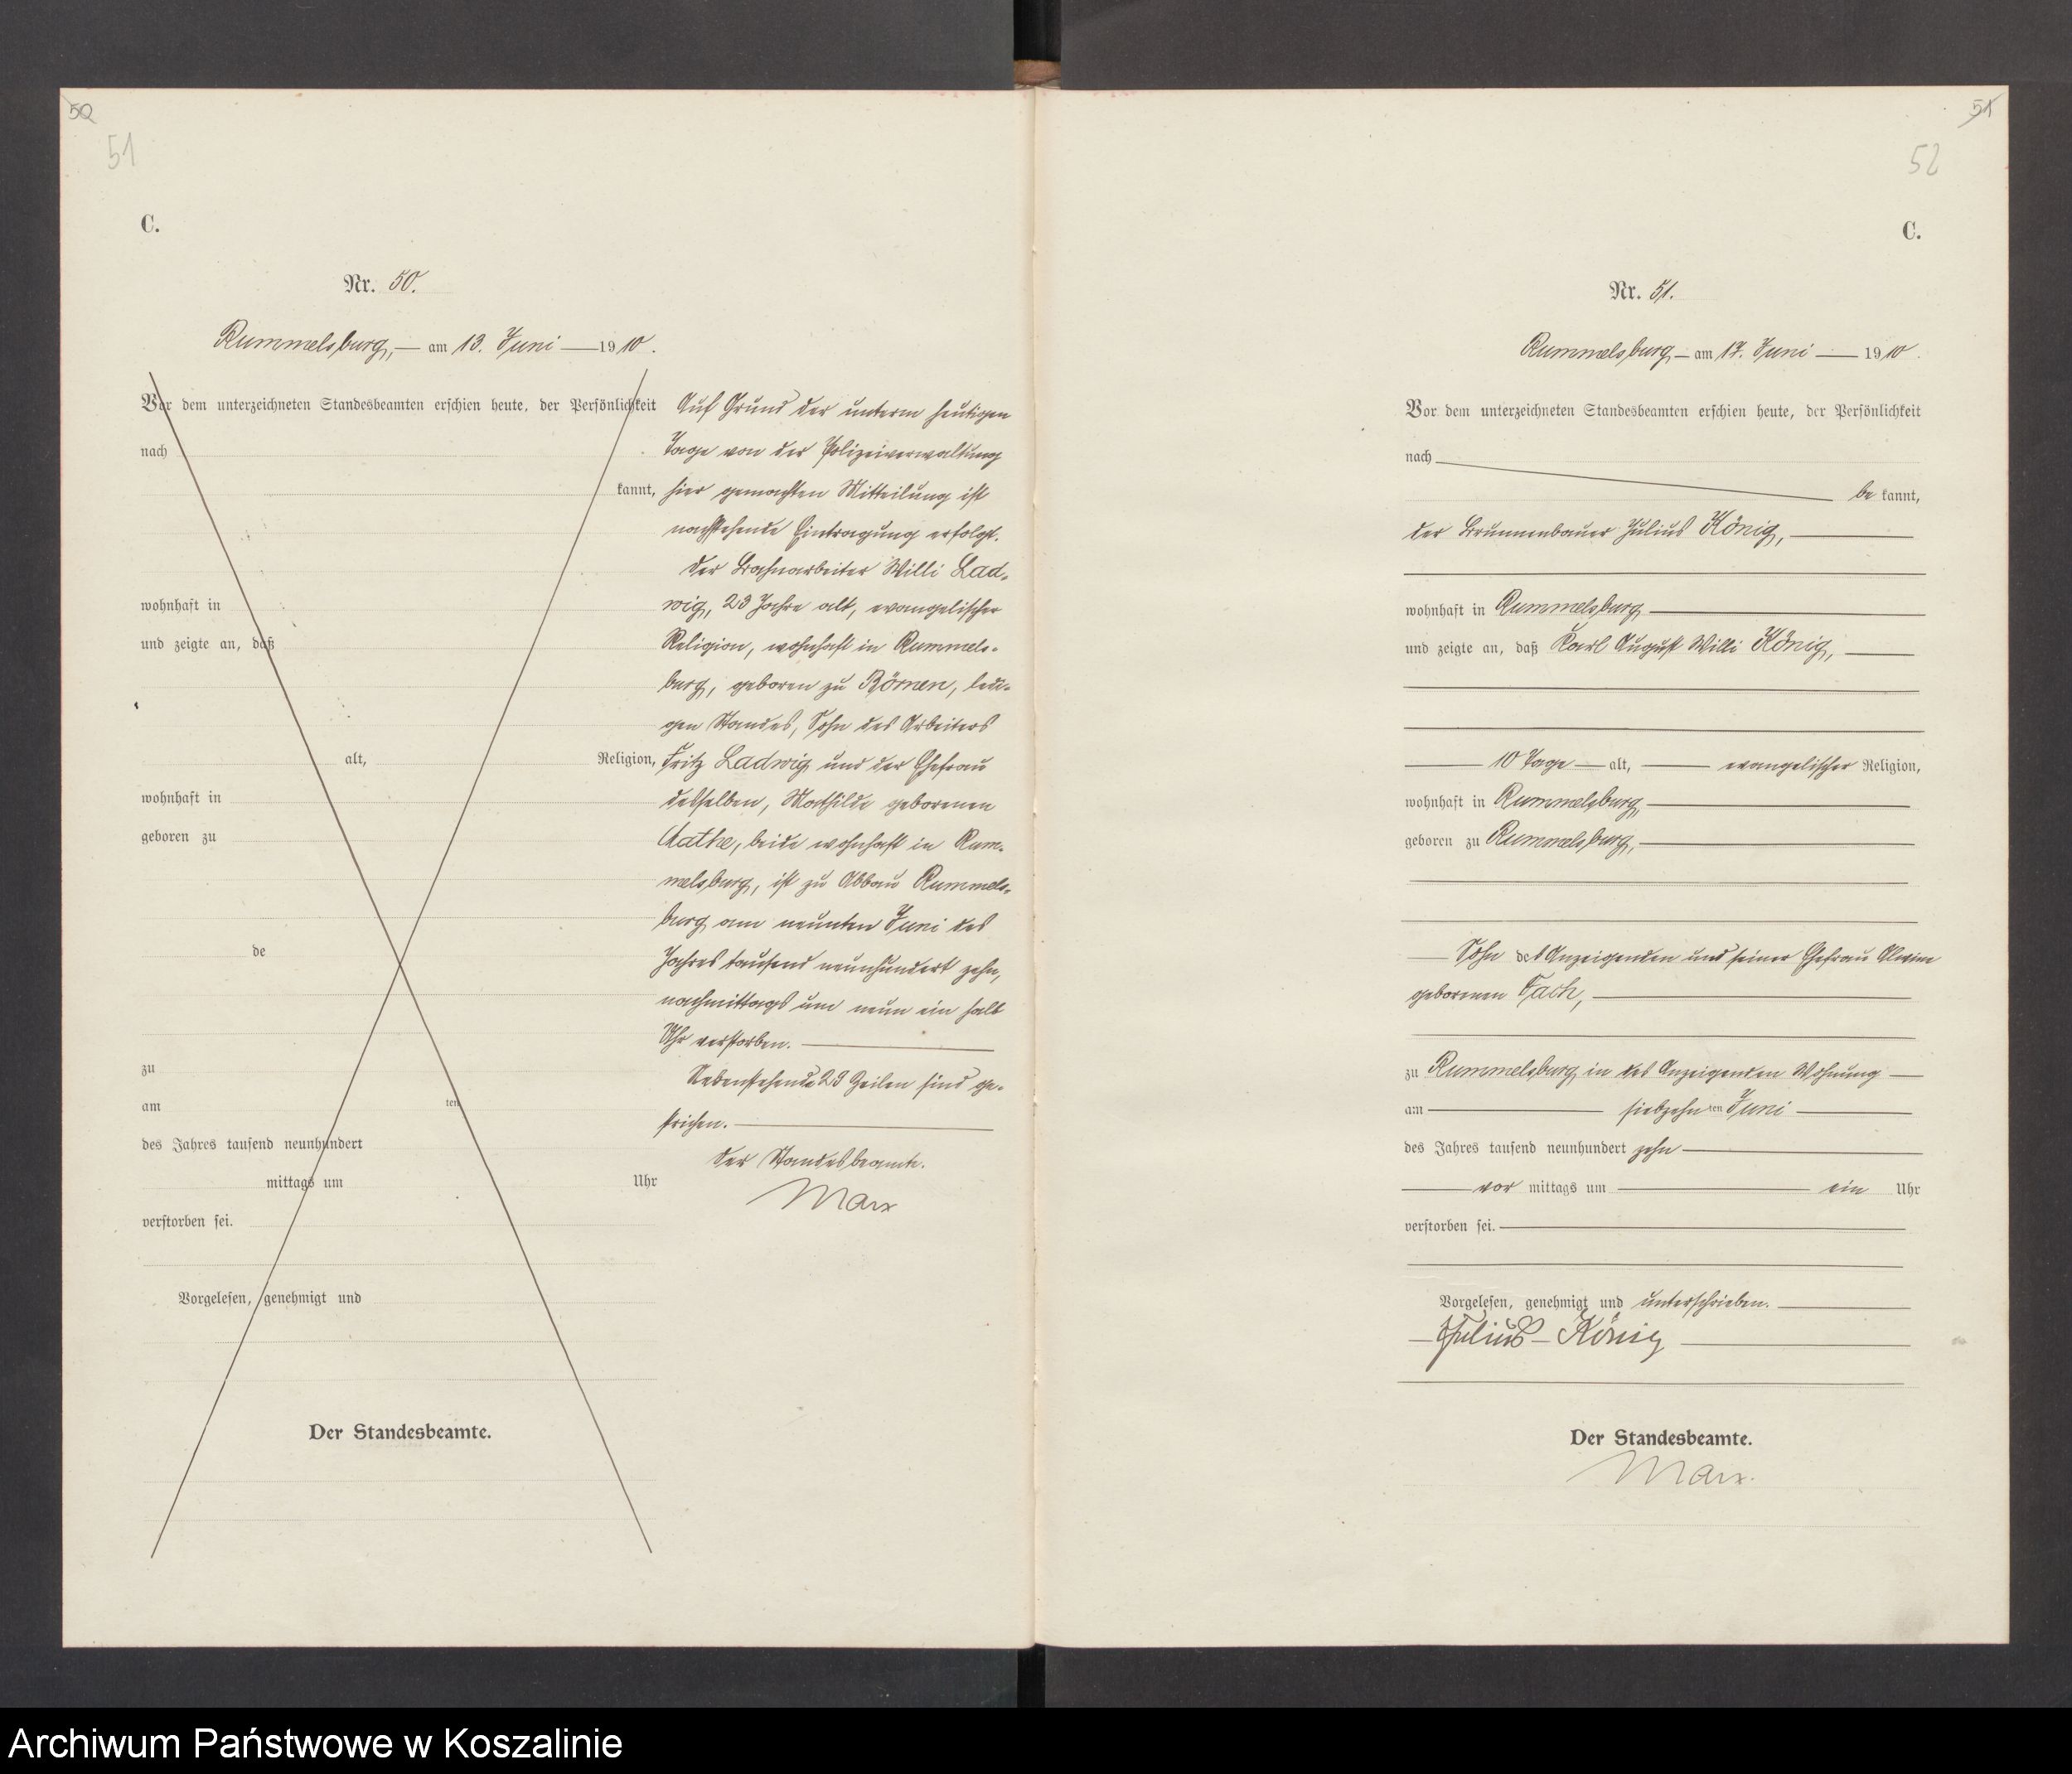 50
51
C.
Nr. 50.
Rummelsburg, am 13. Juni 1910.
Vor dem unterzeichneten Standesbeamten erschien heute, der Persönlichkeit
nach
kannt,
wohnhaft in
und zeigte an, daß
alt, Religion,
wohnhaft in
geboren zu
de
zu
am ten
des Jahres tausend neunhundert
mittags um Uhr
verstorben sei.
Vorgelesen, genehmigt und
Der Standesbeamte.
Auf Grund der unterm heutigen
Tage von der Polizeiverwaltung
hier gemachten Mitteilung ist
nachstehende Eintragung erfolgt.
Der Bahnarbeiter Willi Lad-
wig, 23 Jahre alt, evangelischer
Religion, wohnhaft in Rummels-
burg, geboren zu Börnen, ledi-
gen Standes, Sohn des Arbeiters
Fritz Ladwig und der Ehefrau
desselben, Mathilde geborenen
beide wohnhaft in Rum-
melsburg, ist zu Abbau Rummels-
burg am neunten Juni des
Jahres tausend neunhundert zehn,
nachmittags um neun ein halb
Uhr verstorben.
Nebenstehende 23 Zeilen sind ge-
strichen.
Der Standesbeamte.
Marx
51
52
C.
Nr. 51.
Rummelsburg am 17. Juni 1910.
Vor dem unterzeichneten Standesbeamten erschien heute, der Persönlichkeit
nach
be kannt,
der Brunnenbauer Julius König,
wohnhaft in Rummelsburg
und zeigte an, daß Karl August Willi König,
10 Tage alt, evangelischer Religion,
wohnhaft in Rummelsburg,
geboren zu Rummelsburg,
Sohn des Anzeigenden und seiner Ehefrau Alwine
geborenen Tach,
zu Rummelsburg in des Anzeigenden Wohnung
am siebzehn ten Juni
des Jahres tausend neunhundert zehn
vor mittags um ein Uhr
verstorben sei.
Vorgelesen, genehmigt und unterschrieben.
Julius König
Der Standesbeamte.
Marx.
Archiwum Państwowe w Koszalinie